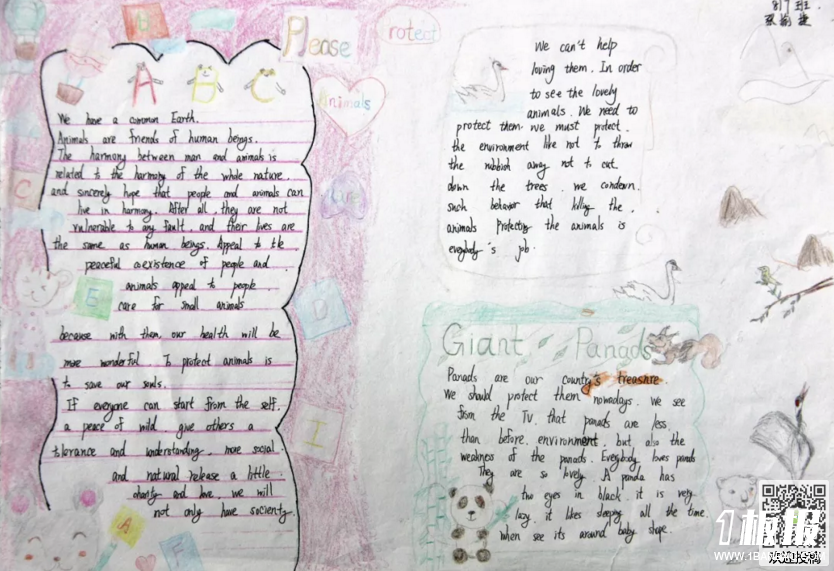 817班
Please
Protect
Animals
A B C
We have a common Earth.
Animals are friends of human beings.
The harmony between man and animals is
related to the harmony of the whole nature.
and sincerely hope that people and animals can
live in harmony. After all, they are not
vulnerable to any fault and their lives are
the same as human beings. Appeal to the
peaceful coexistence of people and
animals appeal to people
care for small animals
because with them, our health will be
more wonderful. To protect animals is
to save our souls.
If everyone can start from the self.
a peace of wild give others a
tolerance and understanding, more social
and natural release a little
charity and love, we will
not only have socienty
B
C
E
D
I
A
F
We can't help
loving them. In order
to see the lovely
animals. We need to
protect them. we must protect.
the environment like not to throw
the rubbish away not to cut
down the trees. we condemn.
such behavior that killing the.
animals Protecting the animals is
everybody's job.
Giant Panads
Panads are our country's treasure.
We should protect them nowadays. We see
from the TV. that panads are less
than before. environment, but also the
weakness of the panads. Everybody loves panads
They are so lovely. A panda has
the eyes in black. it is very
lazy. it likes sleeping all the time
when see its around baby shape.
1板报
WWW.1BANBAO.COM